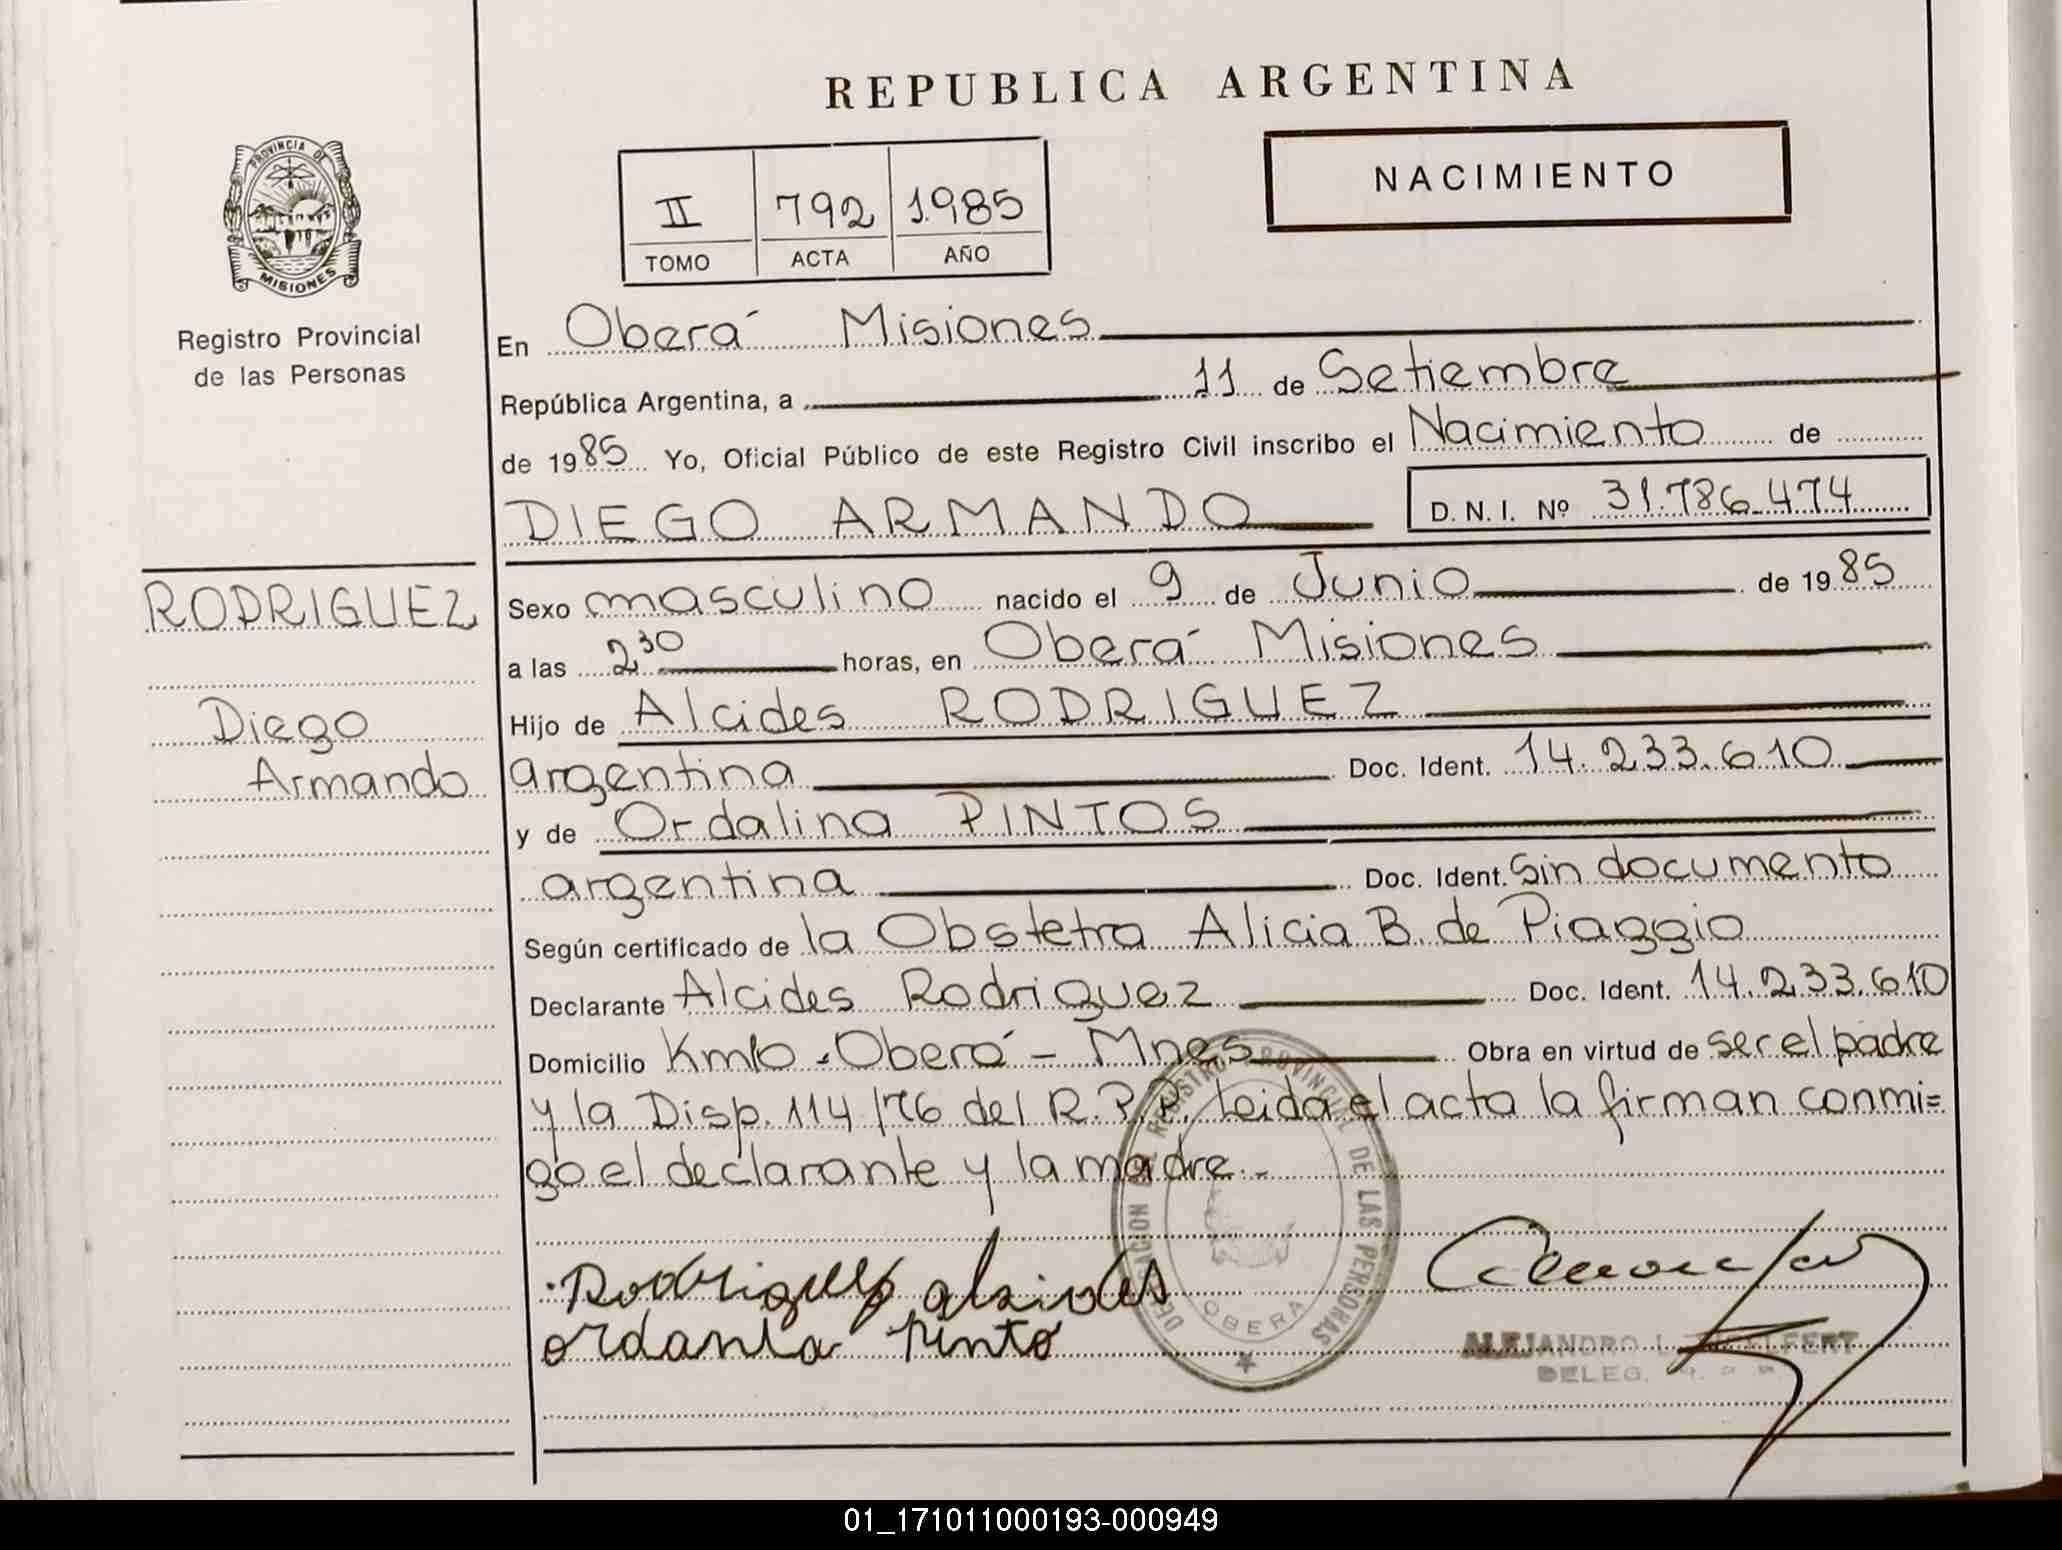 REPUBLICA ARGENTINA
NACIMIENTO
II 792 1985
TOMO ACTA AÑO
PROVINCIA DE
MISIONES
Registro Provincial
de las Personas
RODRIGUEZ
Diego
Armando
En Oberá Misiones
República Argentina, a 11 de Setiembre
de 1985 Yo, Oficial Público de este Registro Civil inscribo el Nacimiento de
DIEGO ARMANDO D.N.I. Nº 31.786.474
Sexo masculino nacido el 9 de Junio de 1985
a las 2 30 horas, en Oberá Misiones
Hijo de Alcides RODRIGUEZ
argentina Doc. Ident. 14.233.610
y de Ordalina PINTOS
argentina Doc. Ident. Sin documento
Según certificado de la Obstetra Alicia B. de Piaggio
Declarante Alcides Rodriguez Doc. Ident. 14.233.610
Domicilio Km10 - Oberá - Mnes Obra en virtud de ser el padre
y la Disp. 114/76 del R.P.P. Leida el acta la firman conmi=
go el declarante y la madre.-
Rodriguez alsides
ordanla Pinto
DELEGACION DEL REGISTRO PROVINCIAL DE LAS PERSONAS
OBERA
ALEJANDRO L.
DELEG.
01_171011000193-000949